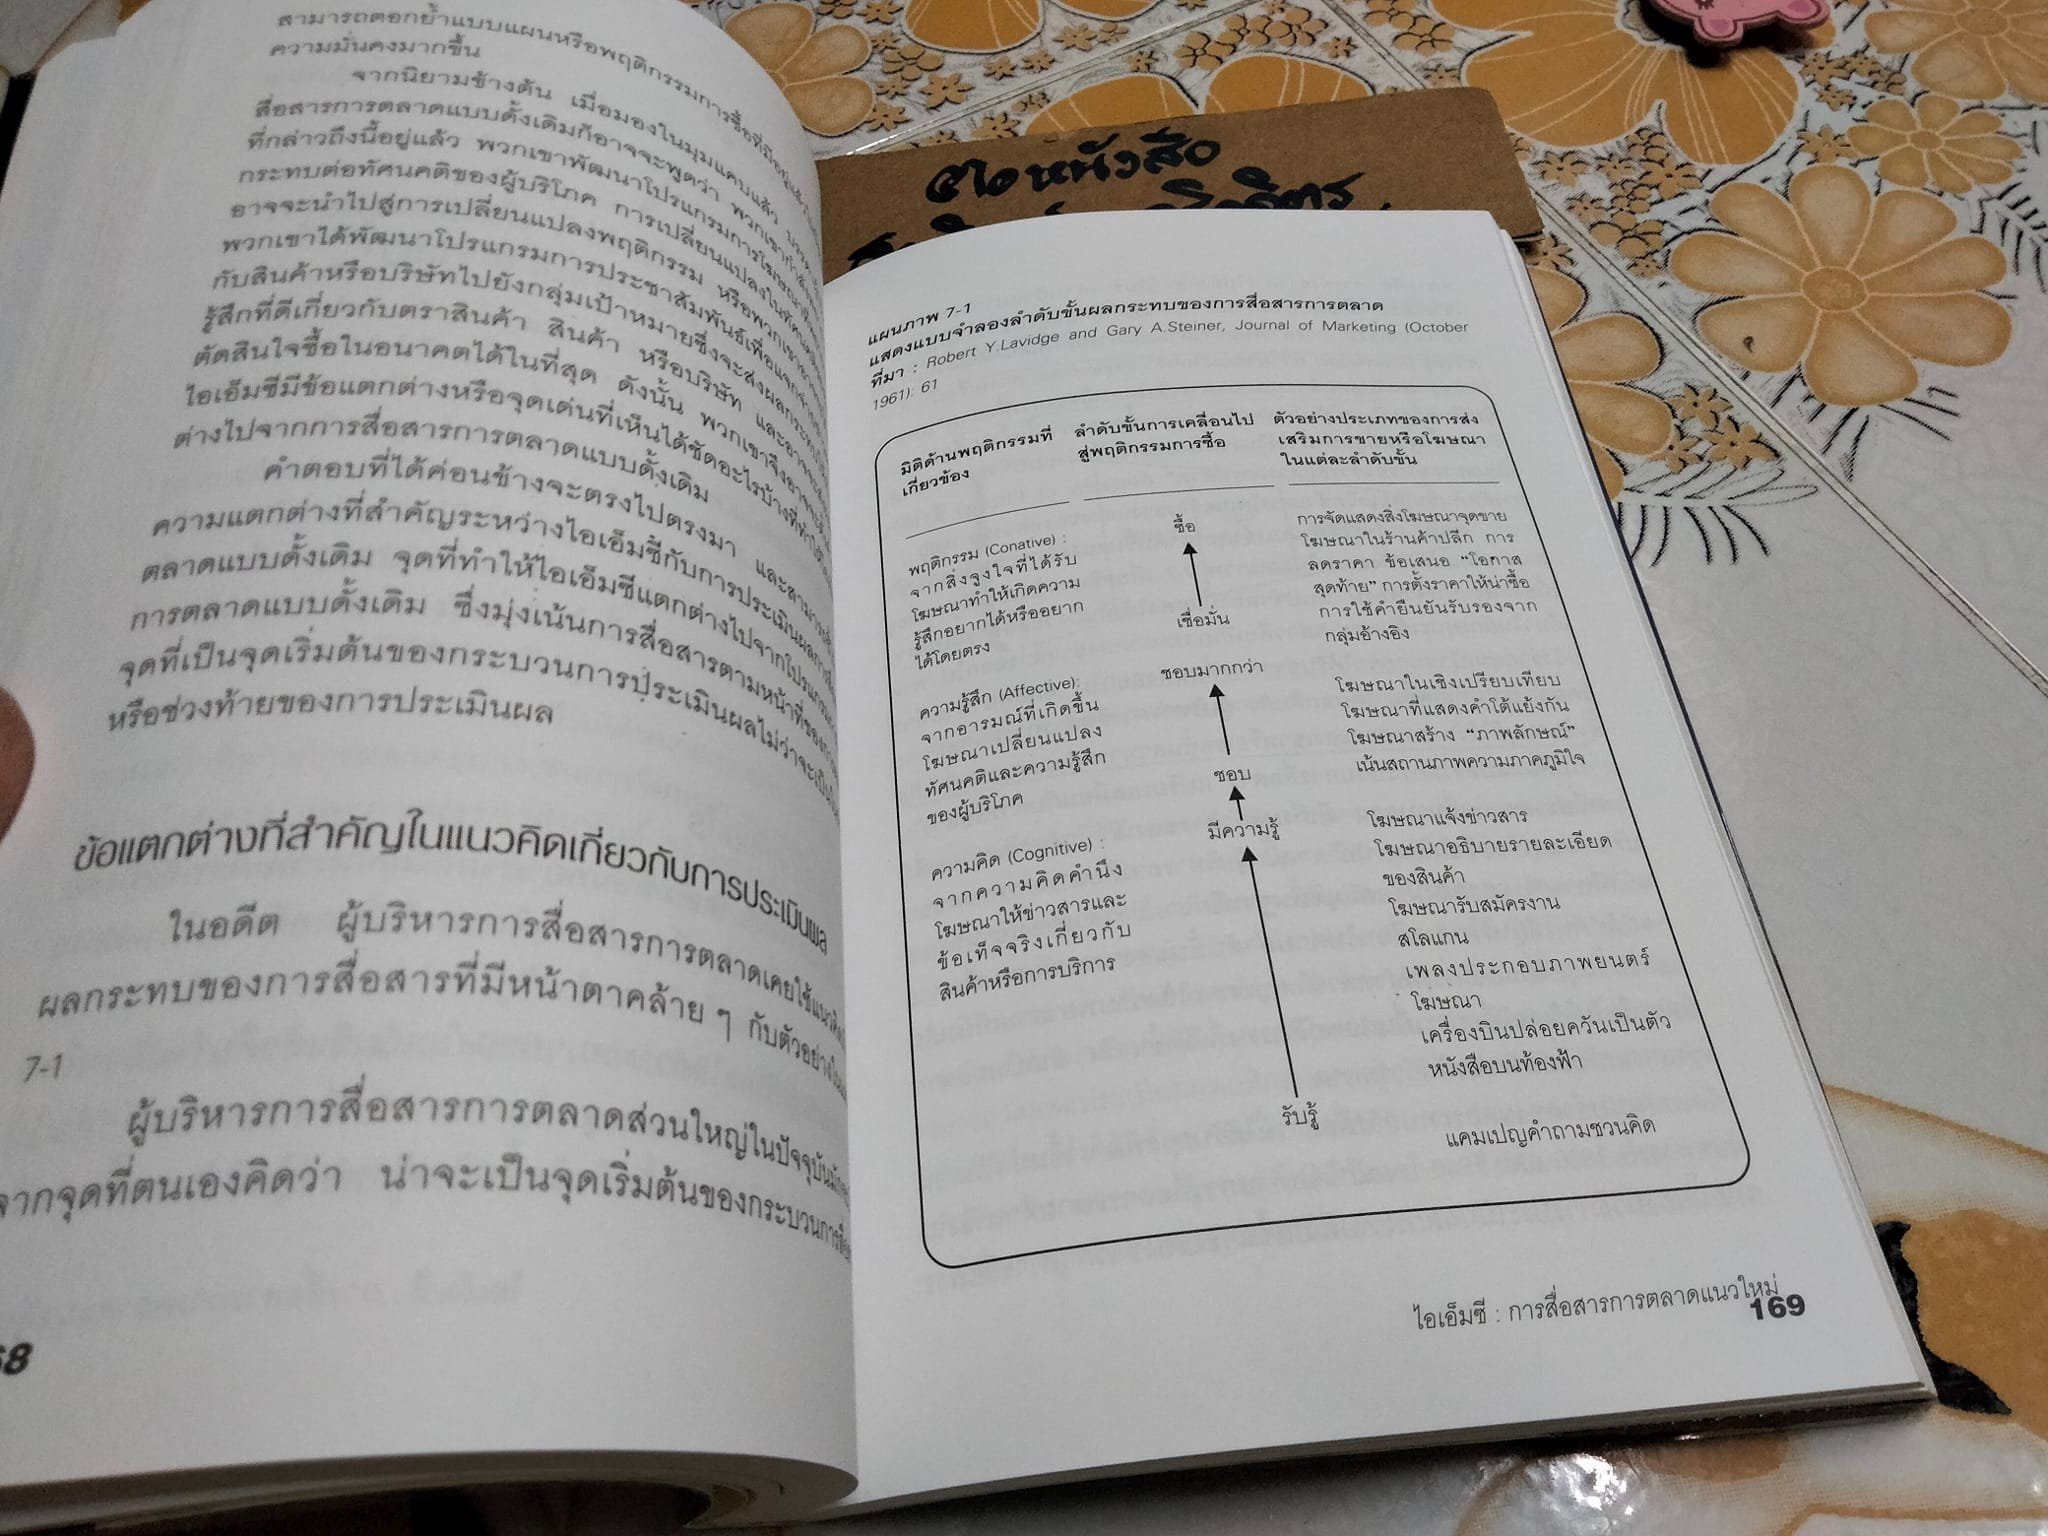 สามารถตอกย้ำแบบแผนหรือพฤติกรรมการซื้อที่มีอยู่แล้ว
ความมั่นคงมากขึ้น
จากนิยามข้างต้น เมื่อมองในมุมแคบแล้ว
สื่อสารการตลาดแบบดั้งเดิมก็อาจจะพูดว่า พวกเขากำลัง
ที่กล่าวถึงนี้อยู่แล้ว พวกเขาพัฒนาโปรแกรมการโฆษณา
กระทบต่อทัศนคติของผู้บริโภค การเปลี่ยนแปลงในทัศนคติ
อาจจะนำไปสู่การเปลี่ยนแปลงพฤติกรรม หรือพวกเขาอาจ
พวกเขาได้พัฒนาโปรแกรมการประชาสัมพันธ์เพื่อแจก
กับสินค้าหรือบริษัทไปยังกลุ่มเป้าหมายซึ่งจะส่งผลกระทบ
รู้สึกที่ดีเกี่ยวกับตราสินค้า สินค้า หรือบริษัท และอาจจะ
ตัดสินใจซื้อในอนาคตได้ในที่สุด ดังนั้น พวกเขาจึงอาจจะ
ไอเอ็มซีมีข้อแตกต่างหรือจุดเด่นที่เห็นได้ชัดอะไรบ้างที่ทำให้
ต่างไปจากการสื่อสารการตลาดแบบดั้งเดิม
คำตอบที่ได้ค่อนข้างจะตรงไปตรงมา และสามารถ
ความแตกต่างที่สำคัญระหว่างไอเอ็มซีกับการประเมินผลการ
ตลาดแบบดั้งเดิม จุดที่ทำให้ไอเอ็มซีแตกต่างไปจากโปรแกรม
การตลาดแบบดั้งเดิม ซึ่งมุ่งเน้นการสื่อสารตามหน้าที่ของ
จุดที่เป็นจุดเริ่มต้นของกระบวนการประเมินผลไม่ว่าจะเป็น
หรือช่วงท้ายของการประเมินผล
ข้อแตกต่างที่สำคัญในแนวคิดเกี่ยวกับการประเมินผล
ในอดีต ผู้บริหารการสื่อสารการตลาดเคยใช้แนวคิด
ผลกระทบของการสื่อสารที่มีหน้าตาคล้าย ๆ กับตัวอย่างใน
7-1
ผู้บริหารการสื่อสารการตลาดส่วนใหญ่ในปัจจุบันมัก
จากจุดที่ตนเองคิดว่า น่าจะเป็นจุดเริ่มต้นของกระบวนการ
68
หนังสือ
แผนภาพ 7-1
แสดงแบบจำลองลำดับขั้นผลกระทบของการสื่อสารการตลาด
ที่มา : Robert Y.Lavidge and Gary A.Steiner, Journal of Marketing (October
1961); 61
มิติด้านพฤติกรรมที่
เกี่ยวข้อง
ลำดับขั้นการเคลื่อนไป
สู่พฤติกรรมการซื้อ
ตัวอย่างประเภทของการส่ง
เสริมการขายหรือโฆษณา
ในแต่ละลำดับขั้น
พฤติกรรม (Conative) :
จากสิ่งจูงใจที่ได้รับ
โฆษณาทำให้เกิดความ
รู้สึกอยากได้หรืออยาก
ได้โดยตรง
ซื้อ
เชื่อมั่น
การจัดแสดงสิ่งโฆษณาจุดขาย
โฆษณาในร้านค้าปลีก การ
ลดราคา ข้อเสนอ “โอกาส
สุดท้าย” การตั้งราคาให้น่าซื้อ
การใช้คำยืนยันรับรองจาก
กลุ่มอ้างอิง
ความรู้สึก (Affective):
จากอารมณ์ที่เกิดขึ้น
โฆษณาเปลี่ยนแปลง
ทัศนคติและความรู้สึก
ของผู้บริโภค
ชอบมากกว่า
ชอบ
โฆษณาในเชิงเปรียบเทียบ
โฆษณาที่แสดงคำโต้แย้งกัน
โฆษณาสร้าง “ภาพลักษณ์”
เน้นสถานภาพความภาคภูมิใจ
ความคิด (Cognitive) :
จากความคิดคำนึง
โฆษณาให้ข่าวสารและ
ข้อเท็จจริงเกี่ยวกับ
สินค้าหรือการบริการ
มีความรู้
รับรู้
โฆษณาแจ้งข่าวสาร
โฆษณาอธิบายรายละเอียด
ของสินค้า
โฆษณารับสมัครงาน
สโลแกน
เพลงประกอบภาพยนตร์
โฆษณา
เครื่องบินปล่อยควันเป็นตัว
หนังสือบนท้องฟ้า
แคมเปญคำถามชวนคิด
ไอเอ็มซี : การสื่อสารการตลาดแนวใหม่
169